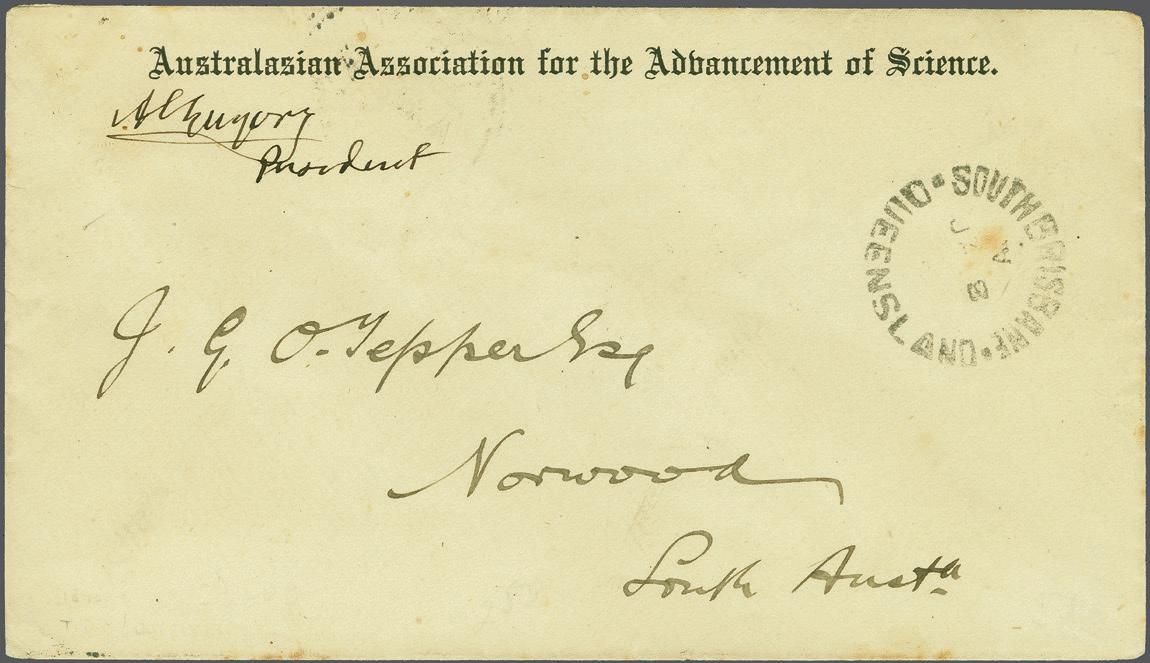 Australasian Association for the Advancement of Science.
A C Gregory
President
SOUTH BRISBANE • QUEENSLAND •
J
8
A
J. G. O. Tepper Esq
Norwood
South Austa.